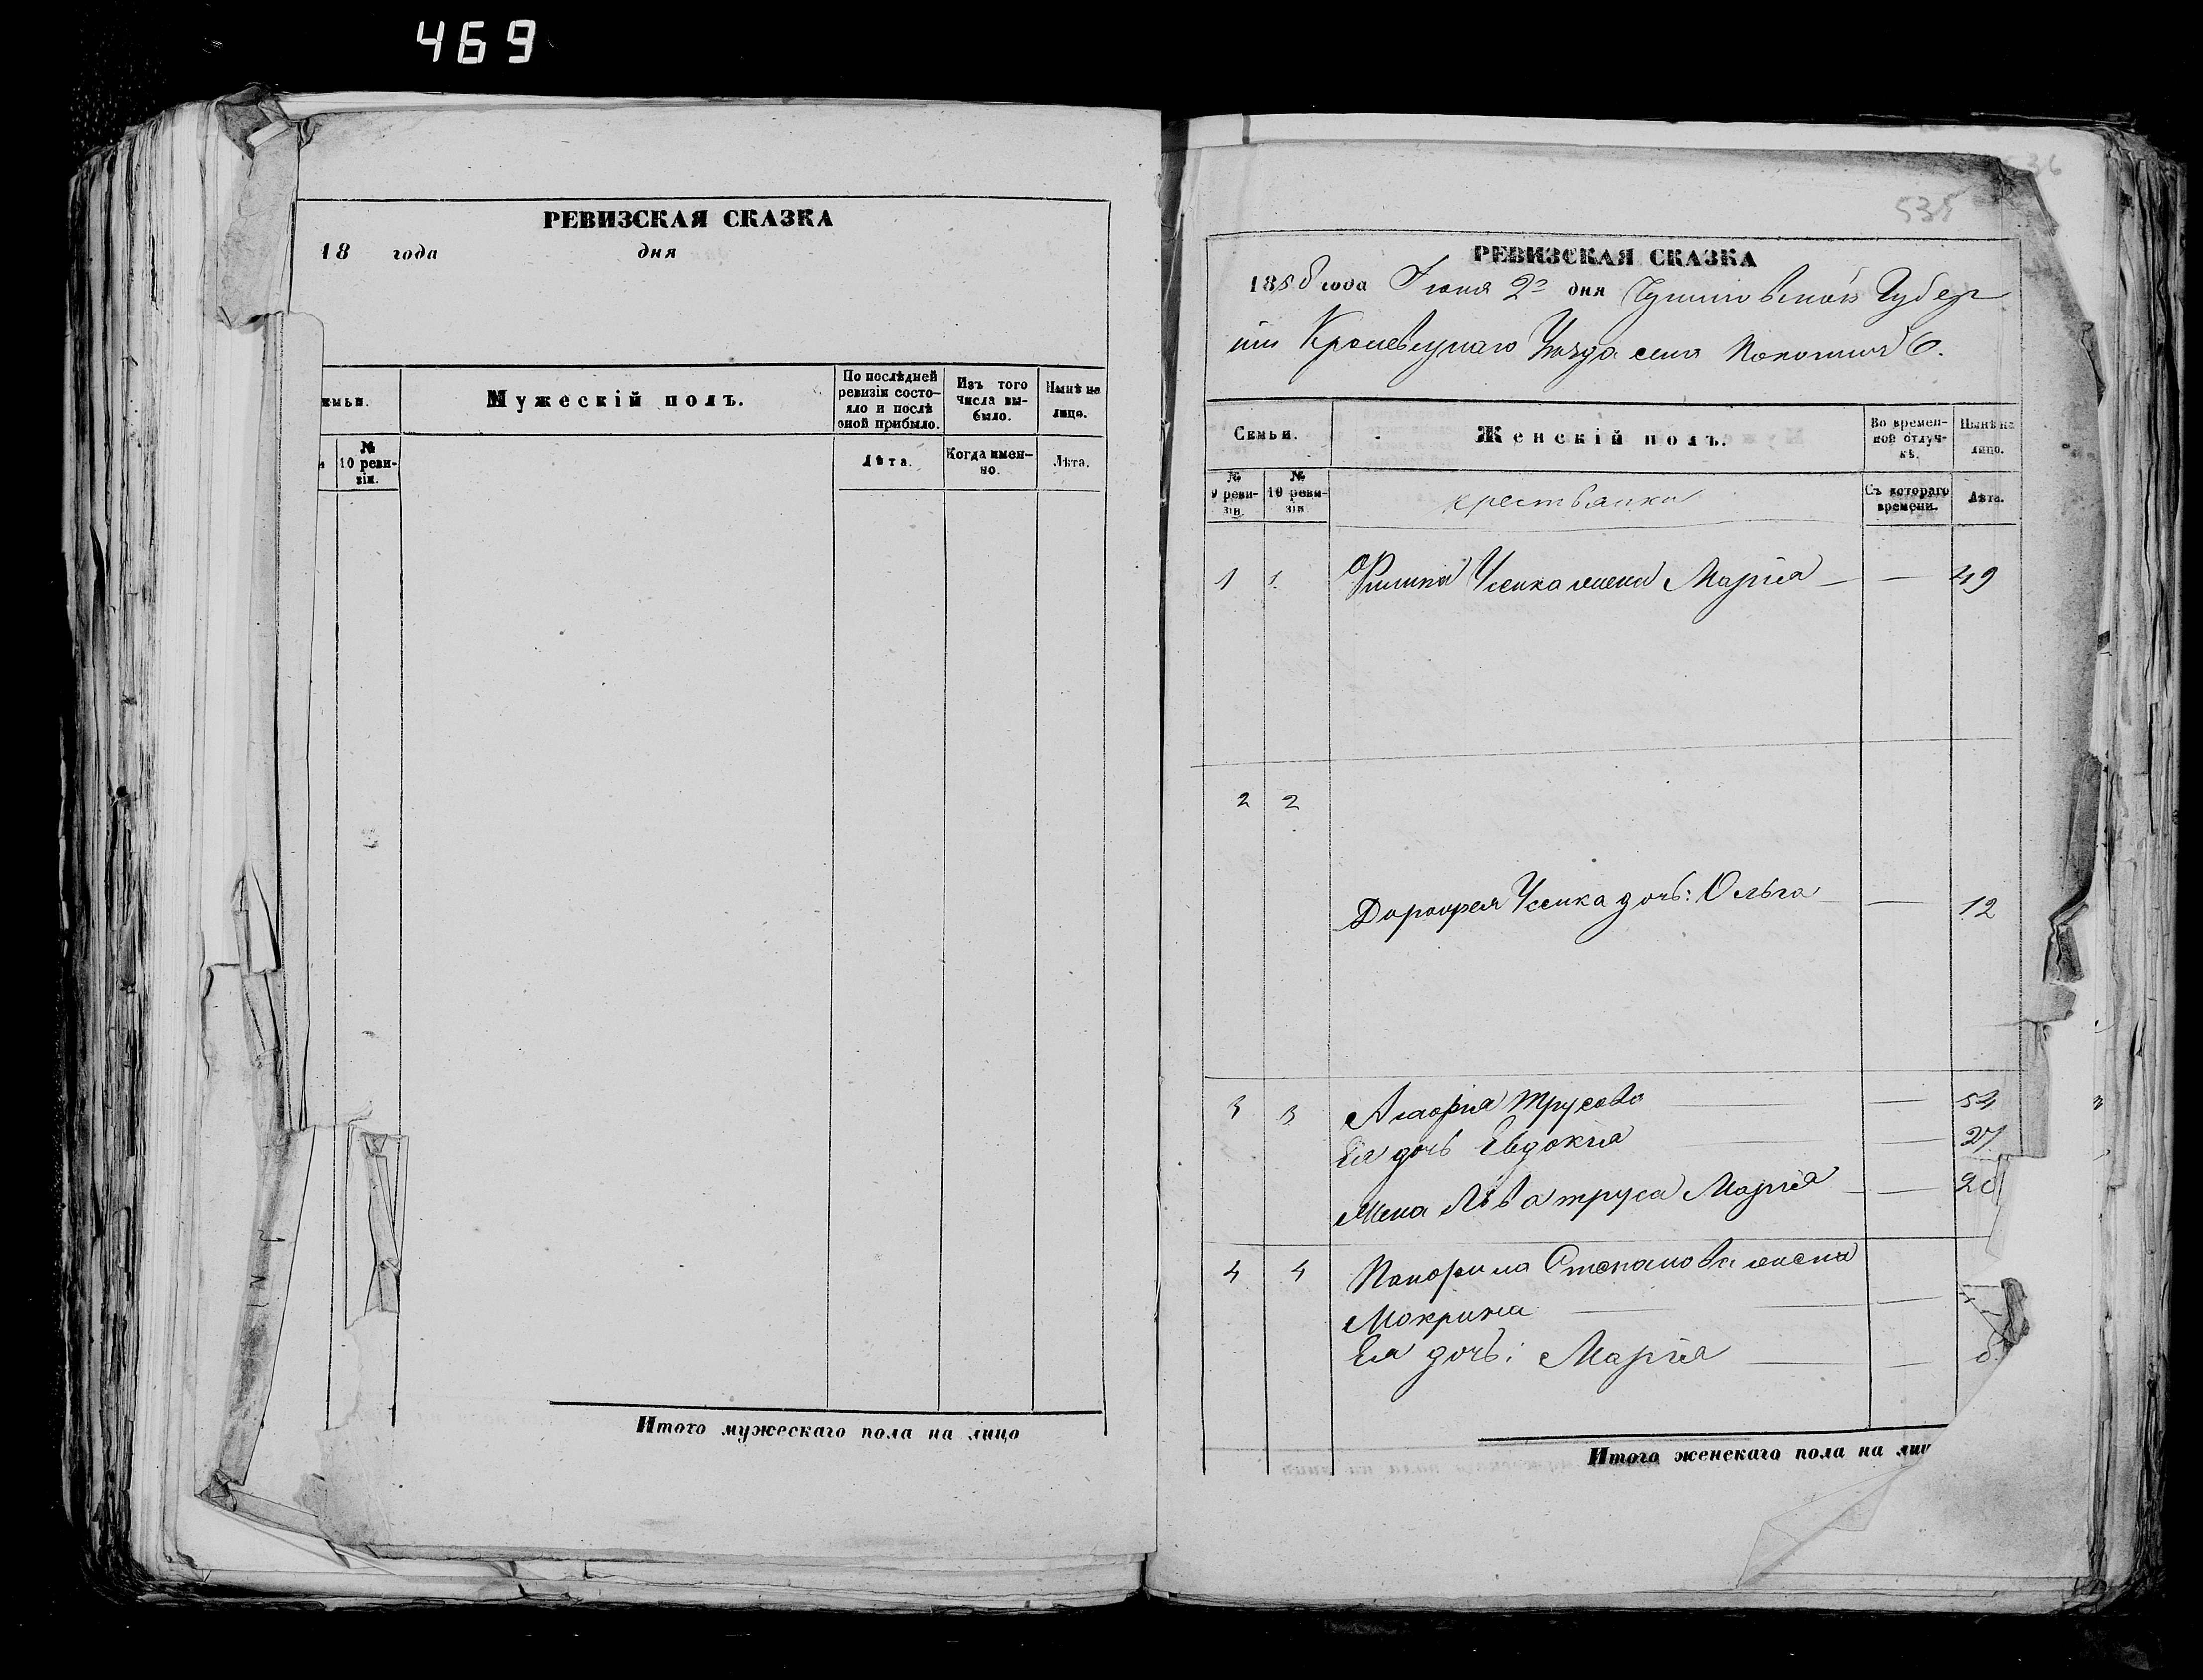 469
РЕВИЗСКАЯ СКАЗКА
18 года дня
Мужескій полъ.
По послѣдней ревизіи состояло и послѣ оной прибыло.
Изъ того числа выбыло.
Нынѣ на лицо.
№ 10 ревизіи.
Лѣта.
Когда именно.
Лѣта.
Итого мужескаго пола на лицо
535
РЕВИЗСКАЯ СКАЗКА
1858 года Июня 2 дня Губер
ніи Кролевецкаго Уезда села
Семьи.
Женскій полъ.
Во временной отлучкѣ.
Нынѣ на лицо.
№ 9 ревизіи.
№ 10 ревизіи
крестьянка
Съ котораго времени.
Лѣта.
1 1. Филипа Усенка жена Марія — — 49
2 2
Дорофея Усенка дочь: Ольга — 12
3 3 Агафия Трусова — — 54
Ея дочь Евдокия — — 27
Жена Лва труса Марія — —
4 4 Панфила Степанова жена
Мокрина — —
Ея дочь: Марія — —
Итого женскаго пола на лиц